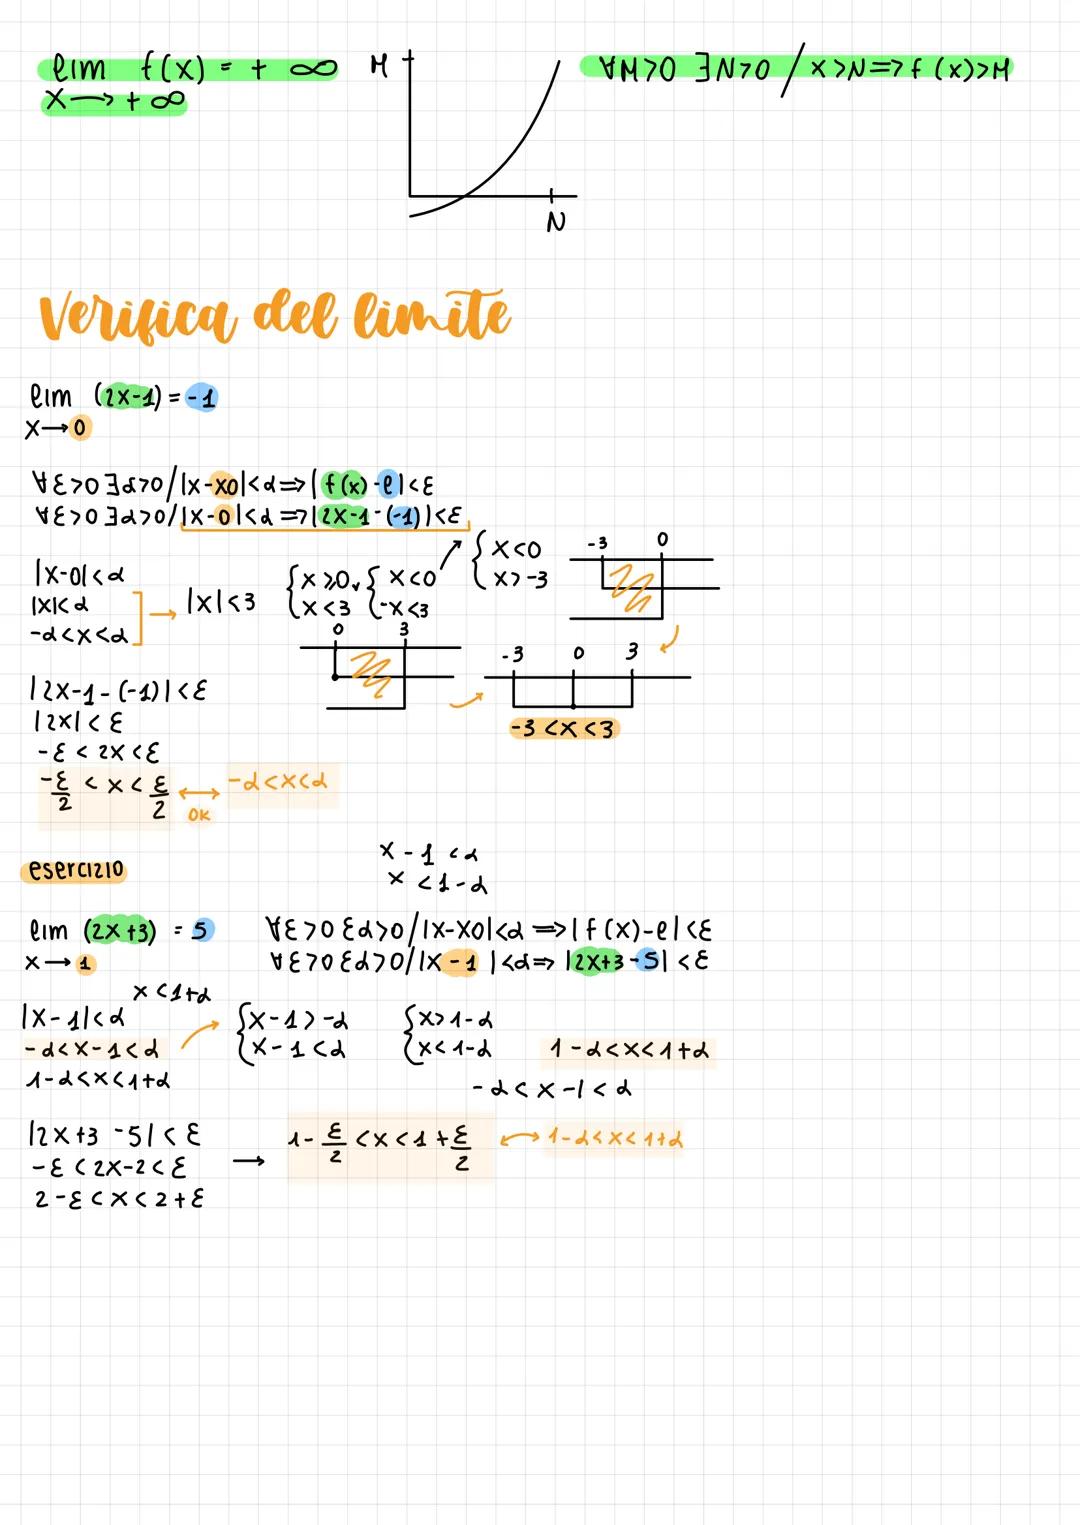 lim f(x) = + ∞
x → + ∞
M
N
∀M>0 ∃N>0 / x>N => f(x)>M
Verifica del limite
lim (2x-1) = -1
x → 0
∀ε>0 ∃α>0 / |x-x0|<α => |f(x)-l|<ε
∀ε>0 ∃α>0 / |x-0|<α => |2x-1-(-1)|<ε
|x-0|<α
|x|<α
-α<x<α
→ |x|<3
{x≥0 v {x<0
{x<3 {-x<3
{x<0
{x>-3
-3 0
0 3
-3 0 3
-3<x<3
|2x-1-(-1)|<ε
|2x|<ε
-ε<2x<ε
-ε/2 < x < ε/2 ↔ -α<x<α
OK
esercizio
x-1<α
x<1-α
lim (2x+3) = 5
x → 1
∀ε>0 ξα>0 / |x-x0|<α => |f(x)-l|<ε
∀ε>0 ξα>0 / |x-1|<α => |2x+3-5|<ε
x<1+α
|x-1|<α
-α<x-1<α
1-α<x<1+α
{x-1>-α
{x-1<α
{x>1-α
{x<1-α
1-α<x<1+α
-α<x-1<α
|2x+3-5|<ε
-ε<2x-2<ε →
2-ε<x<2+ε
1-ε/2 <x<1+ε/2 ↔ 1-α<x<1+α